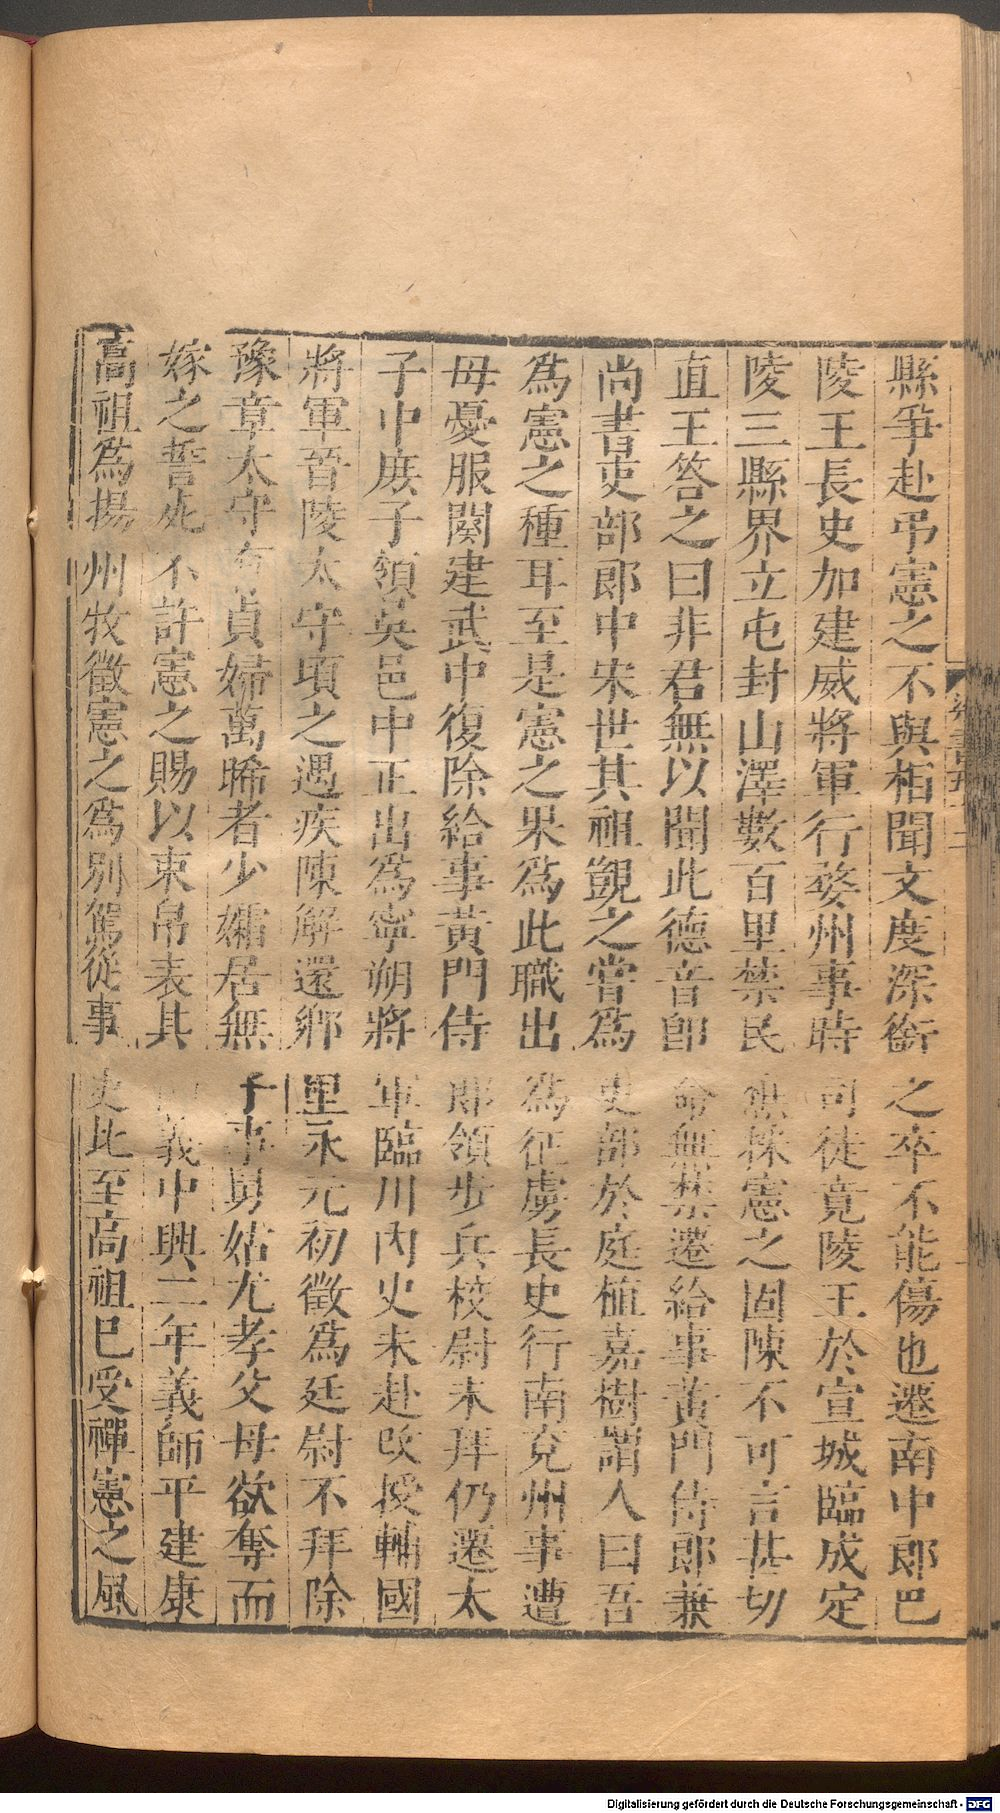 縣爭赴弔憲之不與相聞文度深銜之卒不能傷也遷南中郎巴
陵王長史加建威將軍行婺州事時司徒竟陵王於宣城臨成定
陵三縣界立屯封山澤數百里禁民樵採憲之固陳不可言甚切
直王答之曰非君無以聞此德音即命無禁遷給事黃門侍郎兼
尚書吏部郎中宋世其祖覬之嘗為吏部於庭植嘉樹謂人曰吾
為憲之種耳至是憲之果為此職出為征虜長史行南兗州事遭
母憂服闋建武中復除給事黃門侍郎領步兵校尉未拜仍遷太
子中庶子領吳邑中正出為寧朔將軍臨川內史未赴改授輔國
將軍晉陵太守頃之遇疾陳解還鄉里永元初徵為廷尉不拜除
豫章太守有貞婦萬晞者少孀居無子事舅姑尤孝父母欲奪而
嫁之誓死不許憲之賜以束帛表其義中興二年義師平建康
高祖為揚州牧徵憲之為別駕從事史比至高祖已受禪憲之風
Digitalisierung gefördert durch die Deutsche Forschungsgemeinschaft - DFG